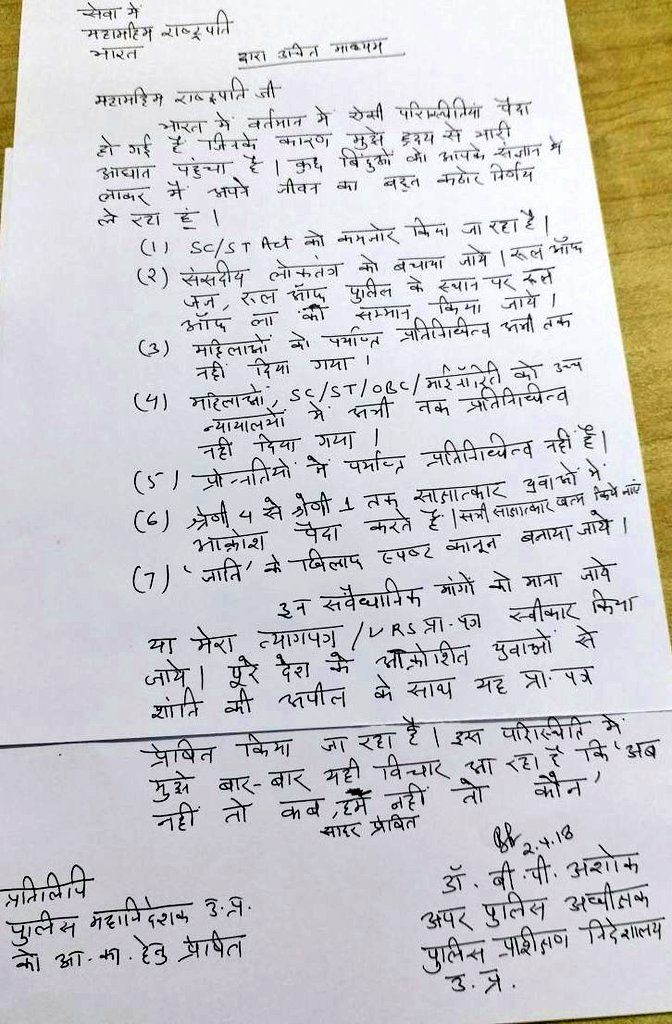 सेवा में
महामहिम राष्ट्रपति
भारत
द्वारा उचित माध्यम
महामहिम राष्ट्रपति जी
भारत में वर्तमान में ऐसी परिस्थितियां पैदा
हो गई हैं जिनके कारण मुझे हृदय से भारी
आघात पहुंचा है। कुछ बिंदुओं को आपके संज्ञान में
लाकर मैं अपने जीवन का बहुत कठोर निर्णय
ले रहा हूं।
(1) SC/ST Act को कमजोर किया जा रहा है।
(2) संसदीय लोकतंत्र को बचाया जाये। रूल ऑफ
जज, रूल ऑफ पुलिस के स्थान पर रूल
ऑफ ला का सम्मान किया जाये।
(3) महिलाओं को पर्याप्त प्रतिनिधित्व अभी तक
नहीं दिया गया।
(4) महिलाओं, SC/ST/OBC/माईनॉरिटी को उच्च
न्यायालयों में अभी तक प्रतिनिधित्व
नहीं दिया गया।
(5) प्रोन्नतियों में पर्याप्त प्रतिनिधित्व नहीं है।
(6) श्रेणी 4 से श्रेणी 1 तक साक्षात्कार युवाओं में
आक्रोश पैदा करते हैं। सभी साक्षात्कार खत्म किये जाएं
(7) 'जाति' के खिलाफ स्पष्ट कानून बनाया जाये।
इन संवैधानिक मांगों को माना जाये
या मेरा त्यागपत्र/VRS प्रा.पत्र स्वीकार किया
जाये। पूरे देश के आक्रोशित युवाओं से
शांति की अपील के साथ यह प्रा. पत्र
प्रेषित किया जा रहा है। इस परिस्थिति में
मुझे बार-बार यही विचार आ रहा है कि 'अब
नहीं तो कब, हम नहीं तो कौन'
सादर प्रेषित
2.4.18
डॉ. बी. पी. अशोक
अपर पुलिस अधीक्षक
पुलिस प्रशिक्षण निदेशालय
उ. प्र.
प्रतिलिपि
पुलिस महानिदेशक उ.प्र.
को आ. का. हेतु प्रेषित